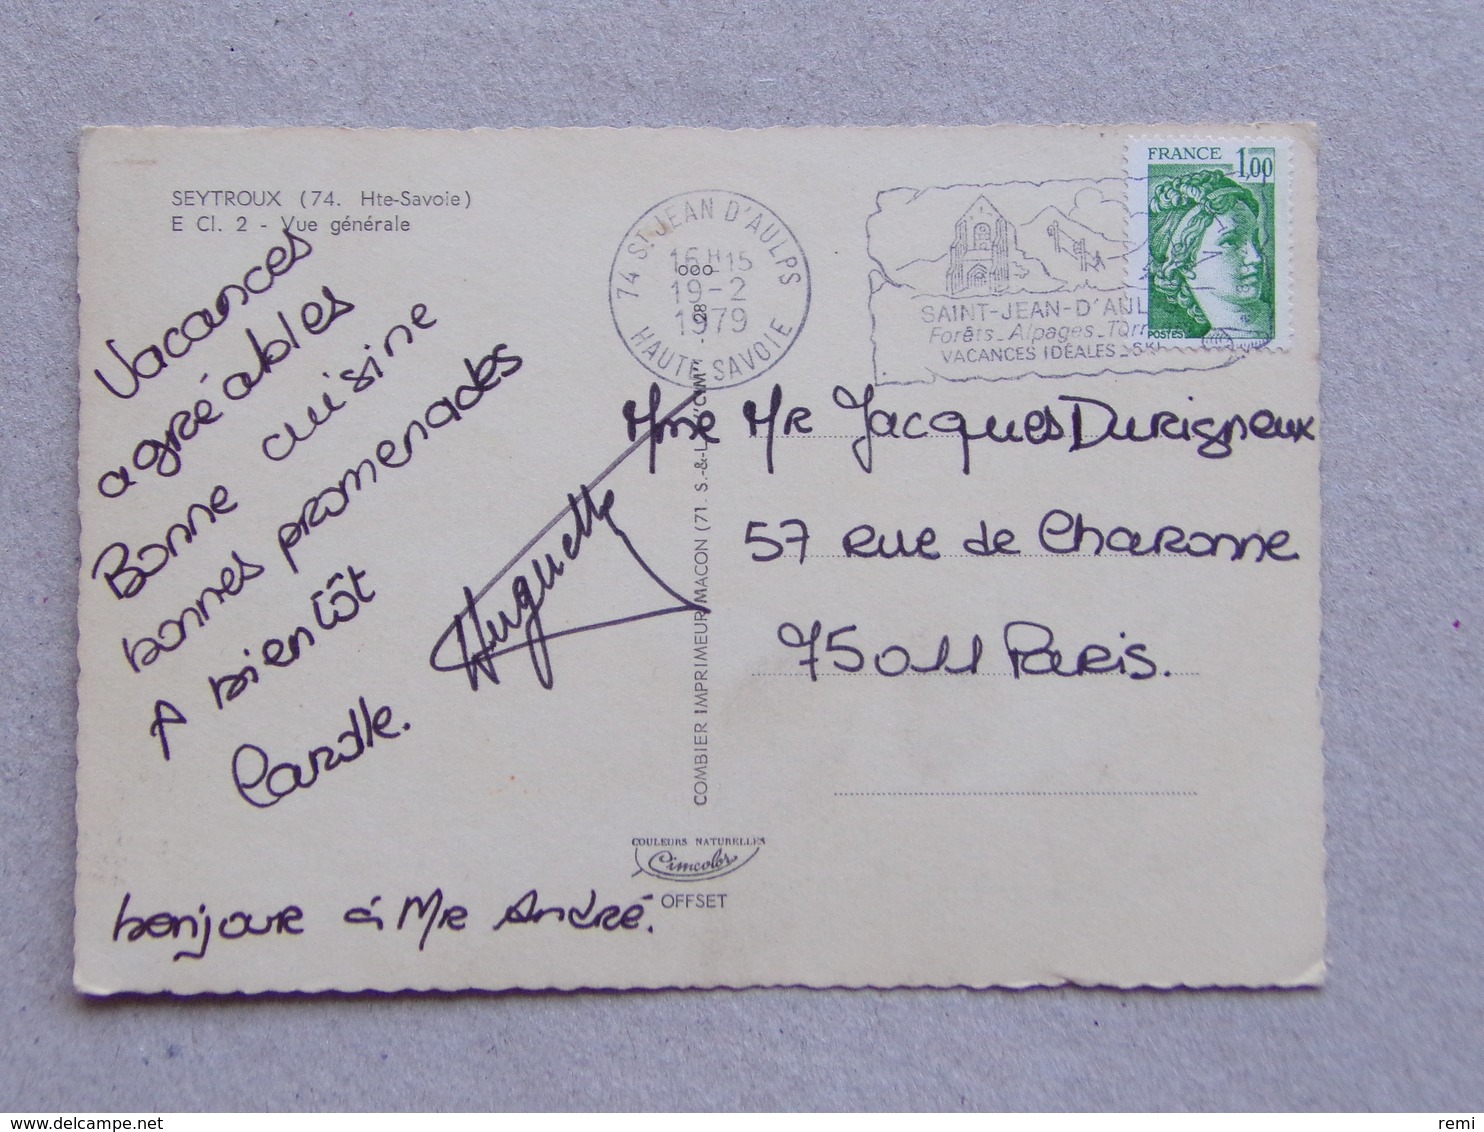 SEYTROUX (74. Hte-Savoie)
E Cl. 2 - Vue générale
Vacances
agréables
Bonne cuisine
bonnes promenades
A bientôt
Huguette
bonjour à Mr André.
74 ST JEAN D'AULPS
16 H 15
19-2
1979
HAUTE SAVOIE
000
SAINT-JEAN-D'AUL
Forêts_Alpages_Torr
VACANCES IDÉALES_SKI
FRANCE 1,00
POSTES
Mme Mr Jacques Durigneux
57 rue de Charonne
75011 Paris.
COMBIER IMPRIMEUR MACON (71. S.-&-L.) "CIM" - 28
COULEURS NATURELLES
Cimcolor
OFFSET
remi
www.delcampe.net